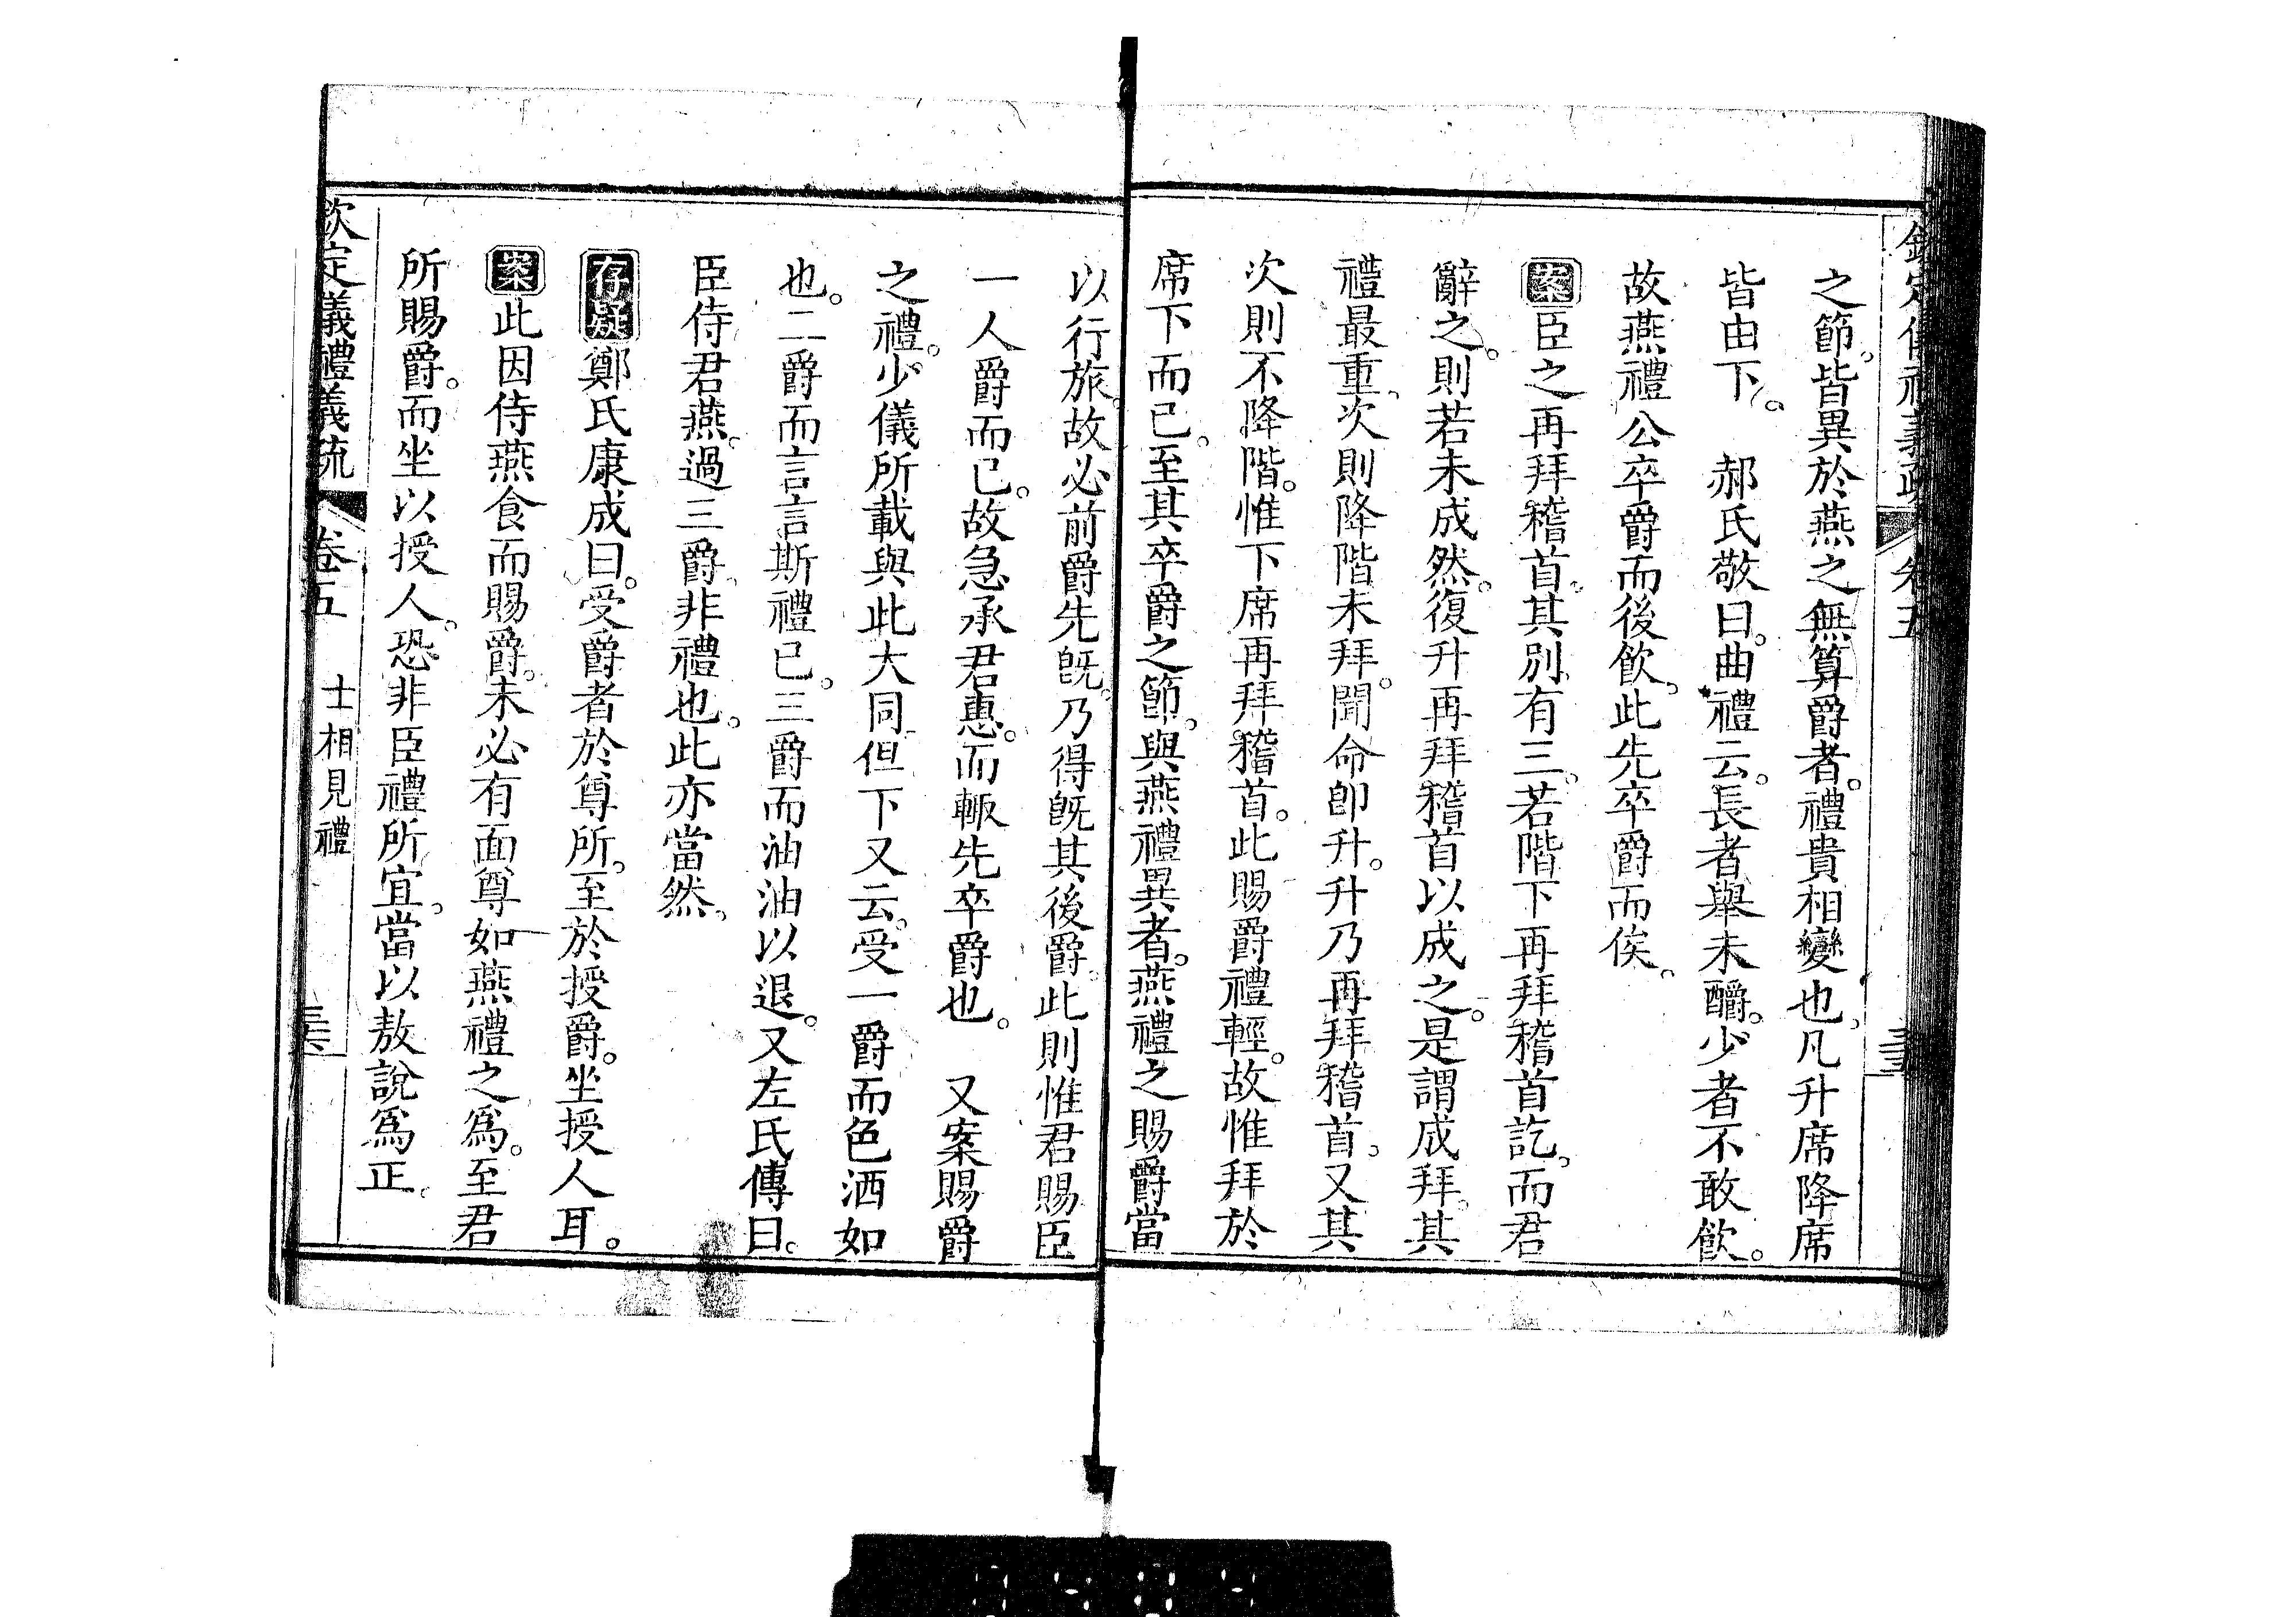 之節。皆異於燕之無算爵者。禮貴相變也。凡升席降席
皆由下。　郝氏敬曰。曲禮云。長者舉未釂。少者不敢飮。
故燕禮公卒爵而後飮。此先卒爵而俟。
案臣之再拜稽首。其別有三。若階下再拜稽首訖。而君
辭之。則若未成然。復升再拜稽首以成之。是謂成拜。其
禮最重。次則降階未拜。聞命卽升。升乃再拜稽首。又其
次則不降階。惟下席再拜稽首。此賜爵禮輕。故惟拜於
席下而已。至其卒爵之節。與燕禮異者。燕禮之賜爵當
以行旅。故必前爵先旣。乃得旣其後爵。此則惟君賜臣
一人爵而已。故急承君惠。而輙先卒爵也。　又案賜爵
之禮。少儀所載與此大同。但下又云。受一爵而色洒如
也。二爵而言言斯禮已。三爵而油油以退。又左氏傳曰。
臣侍君燕。過三爵。非禮也。此亦當然。
存疑鄭氏康成曰。受爵者於尊所。至於授爵。坐授人耳。
案此因侍燕食而賜爵。未必有面尊如燕禮之爲。至君
所賜爵。而坐以授人。恐非臣禮所宜。當以敖說爲正。
欽定儀禮義疏　卷五　士相見禮